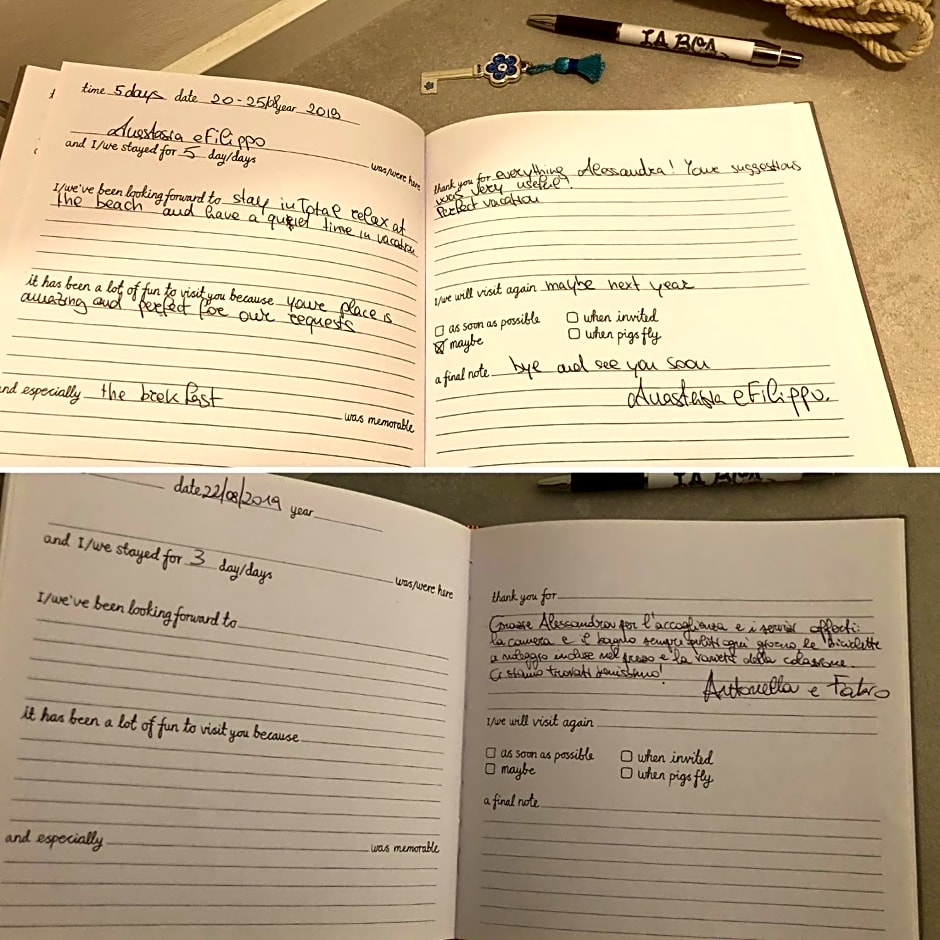 IA BOA
time 5 days date 20-25/08 year 2019
Anastasia e Filippo
was/were here
and I/we stayed for 5 day/days
I/we've been looking forward to stay in Total relax at
the beach and have a quiet time in vacation
it has been a lot of fun to visit you because youre place is
amazing and perfect for our requests
and especially the brek fast
was memorable
thank you for everything Alessandra! Your suggestions
was very useful!
Perfect vacation
I/we will visit again maybe next year
as soon as possible
when invited
maybe
when pigs fly
a final note bye and see you soon
Anastasia e Filippo.
date 22/08/2019 year
was/were here
and I/we stayed for 3 day/days
I/we've been looking forward to
it has been a lot of fun to visit you because
and especially
was memorable
thank you for
Grazie Alessandra per l'accoglienza e i servizi offerti:
la camera e il bagno sempre puliti ogni giorno le biciclette
a noleggio incluse nel prezzo e la varietà della colazione.
Ci siamo trovati benissimo!
Antonella e Fabio
I/we will visit again
as soon as possible
when invited
maybe
when pigs fly
a final note